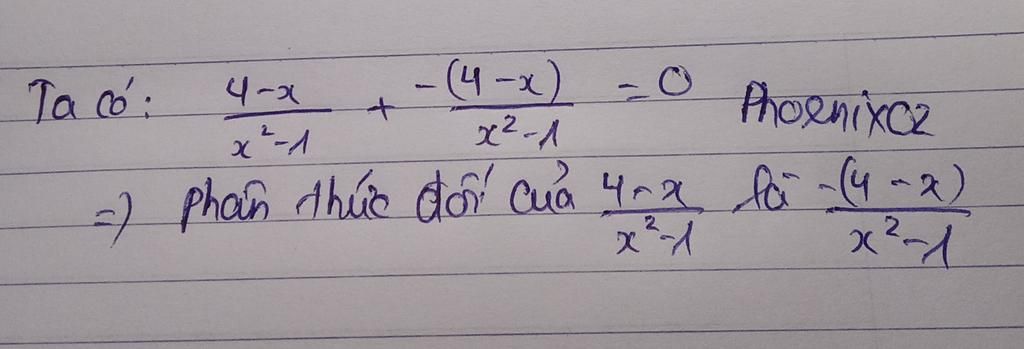 Ta có: \frac{4-x}{x^2-1} + \frac{-(4-x)}{x^2-1} = 0 Phoenixcz
=) phân thức đối của \frac{4-x}{x^2-1} là \frac{-(4-x)}{x^2-1}